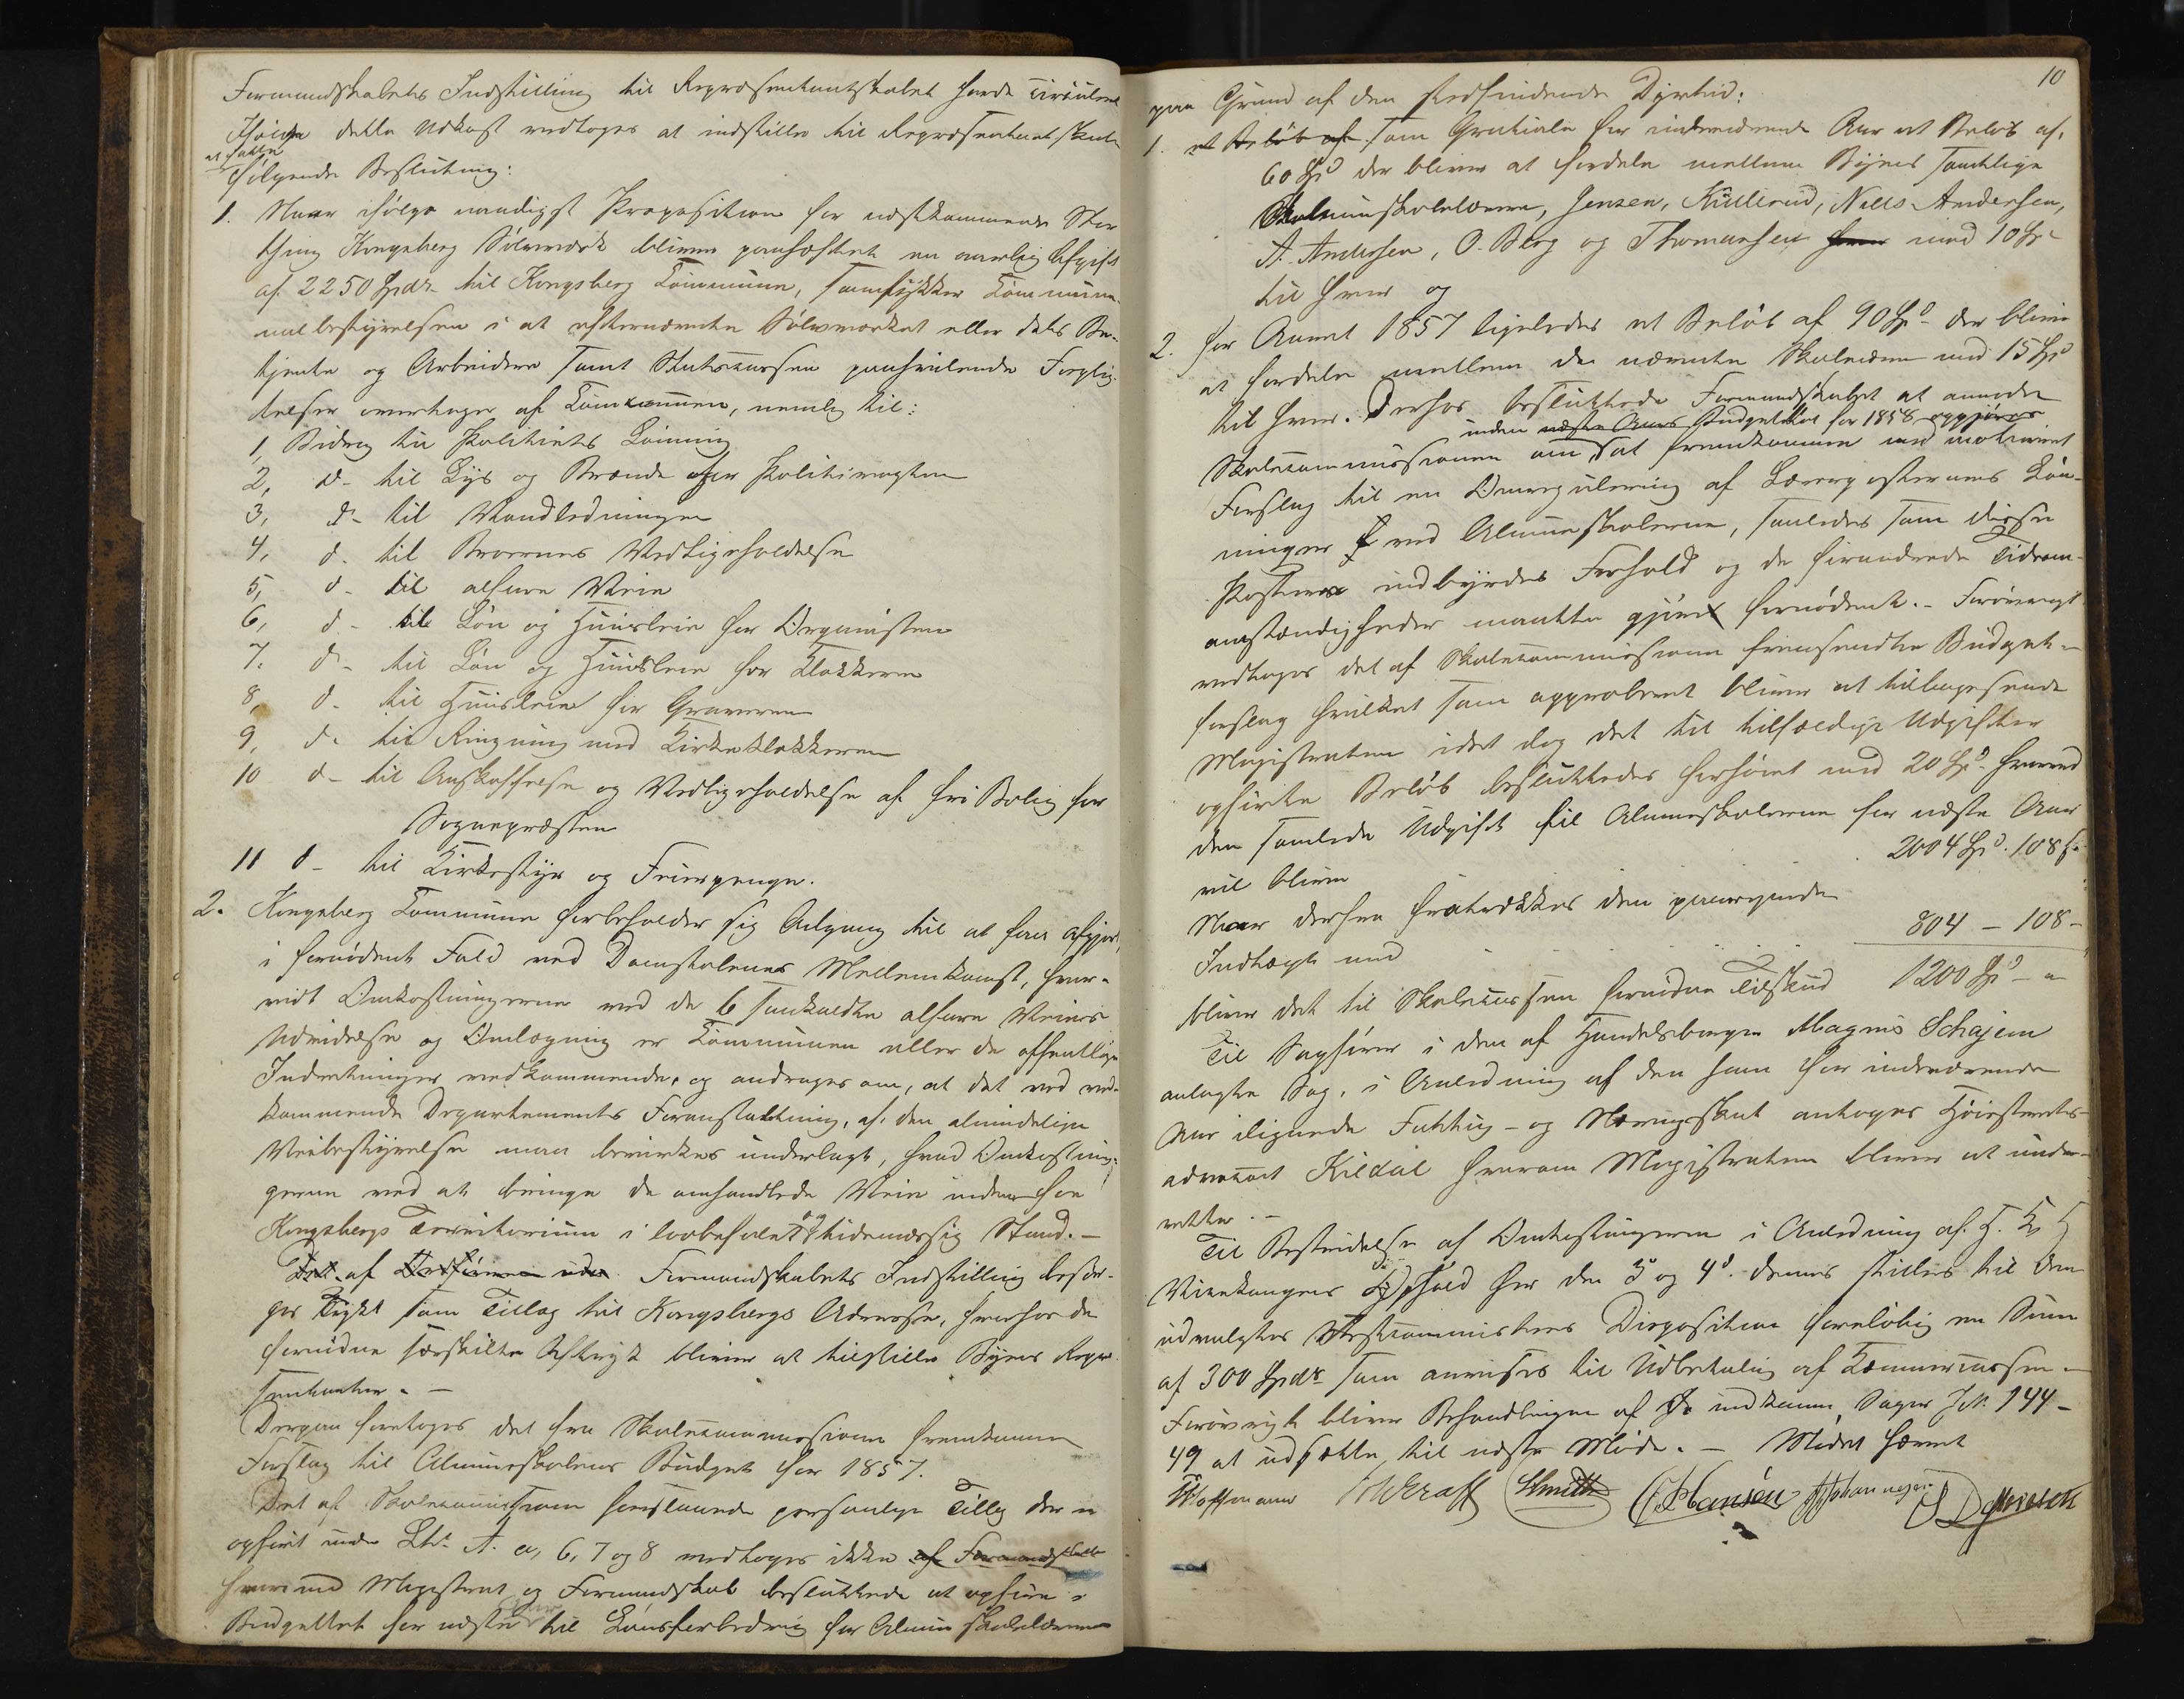 Formandskabets Indstilling til Repræsentantskabet havde circuleret
Ifølge dette Udkast vedtoges at indstille til Repræsentantskabet
at fatte
følgende Beslutning:
1. Naar ifølge naadigst Proposition for næstkommende Stor
thing Kongsberg Sølvværk bliver paahæftet en aarlig Afgift
af 2250 Spdr til Kongsberg Commune, samtykker Commune-
nalbestyrelsen i at efternævnte Sølvværket eller dets Be-
tjente og Arbeidere samt Statscassen paahvilende Forplig-
telser overtages af Communen, nemlig til:
1, Bidrag til Politiets Lønning
2, do til Lys og Brænde for Politivagten
3, do til Vandledningen
4, do til Broernes Vedligeholdelse
5, do til alfare Veie
6, do til Løn og Huusleie for Organisten
7. do til Løn og Huusleie for Klokkeren
8, do til Huusleie for Graveren
9, do til Ringning med Kirkeklokkerne
10 do til Anskaffelse og Vedligeholdelse af fri Bolig for
Sognepræsten
11 do til Kirkestyr og Friepenge.
2. Kongsberg Commune forbeholder sig Adgang til at faa afgjort,
i fornødent Fald ved Domstolenes Mellemkomst, hvor-
vidt Omkostningerne ved de 6 saakaldte alfare Veies
Udvidelse og Omlægning er Communen eller de offentlige
Indretninger vedkommende, og andrages om, at det ved ved-
kommende Departements Foranstaltning, af den almindelige
Veibestyrelse maa bevirkes underlagt, hvad Omkostnin-
gerne ved at bringe de omhandlede Veie inden for
Kongsbergs Territorium i lovbefalet og tidsmæssig Stand. –
Formandskabets Indstilling besør-
ges trykt som Tillæg til Kongsbergs Adresse, hvorhos de
fornødne særskilte Aftryk bliver at tilstille Byens Repræ-
sentanter. –
Derpaa foretoges det fra Skolecommissionen fremkomne
Forslag til Almueskolens Budget for 1857.
Det af Skolecommissionen foreslaaede personlige Tillæg der er
opført under Litr. A. a, 6, 7 og 8 vedtoges ikke af Formandskabet
hvorimod Magistrat og Formandskab besluttede at opføre i
Budgettet for næste Aar til Lønsforbedring for Almueskolelærerne
10
paa Grund af den stedfindende Dyrtid:
1. et Beløb af som Gratiale for indeværende Aar et Beløb af
60 Spd der bliver at fordele mellem Byens samtlige
Almueskolelærere, Jensen, Kullerud, Niels Andersen,
A. Andersen, O. Berg og Thomassen med 10 Spd
til hver og
2. for Aaret 1857 ligeledes et Beløb af 90 Spd der bliver
at fordele mellem de nævnte Skolelærere med 15 Spd
til hver. Derhos besluttede Formandskabet at anmode
inden næste Aars Budgettet for 1858 opgjøres
Skolecommissionen om at fremkomme med motiveret
Forslag til en Omregulering af Lærerposternes Løn-
ninger ved Almueskolerne, saaledes som disse
Posters indbyrdes Forhold og de forandrede Tidsom-
stændigheder maatte gjøre fornødent. – Forøvrigt
vedtoges det af Skolecommissionen fremsendte Budget-
forslag hvilket som approberet bliver at tilbagesende
Magistraten idet dog det til tilfældige Udgifter
opførte Beløb besluttedes forhøiet med 20 Spd hvorved
den samlede Udgift til Almueskolerne for næste Aar
vil blive 2004 Spd. 108 s.
Naar derfra fratrækkes den paaregnede
Indtægt med 804 – 108 –
bliver det til Skolecassen fornødne Tilskud 1200 Spd – "
Til Sagfører i den af Handelsborger Magnus Schajem
anlagte Sag, i Anledning af den ham for indeværende
Aar ilignede Fattig- og Næringsskat antoges Høiesterets-
advocat Kildal hvorom Magistraten bliver at under-
rette. –
Til Bestridelse af Omkostningerne i Anledning af H. K. H.
Vicekongens Ophold her den 3d og 4d dennes stilles til den
udvalgte Festcommittees Disposition foreløbig en Sum
af 300 Spdr som anvises til Udbetaling af Kæmmercassen –
Forøvrigt bliver Behandlingen af de indkomne Sager J. No. 144 –
49 at udsætte til næste Møde. – Mødet hævet
Hoffmann Schmidt C. Hansen Johannesen